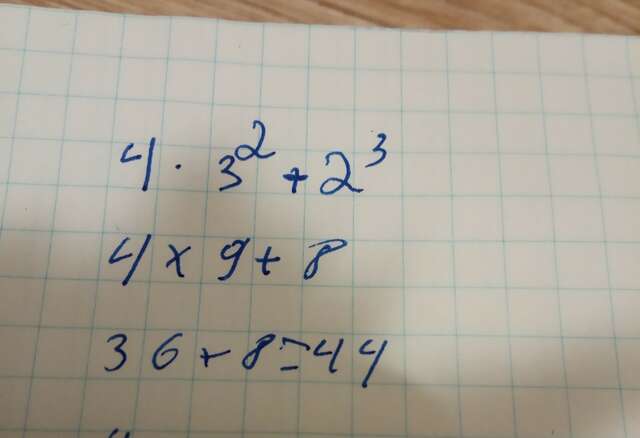 4 · 3² + 2³
4 × 9 + 8
36 + 8 = 44